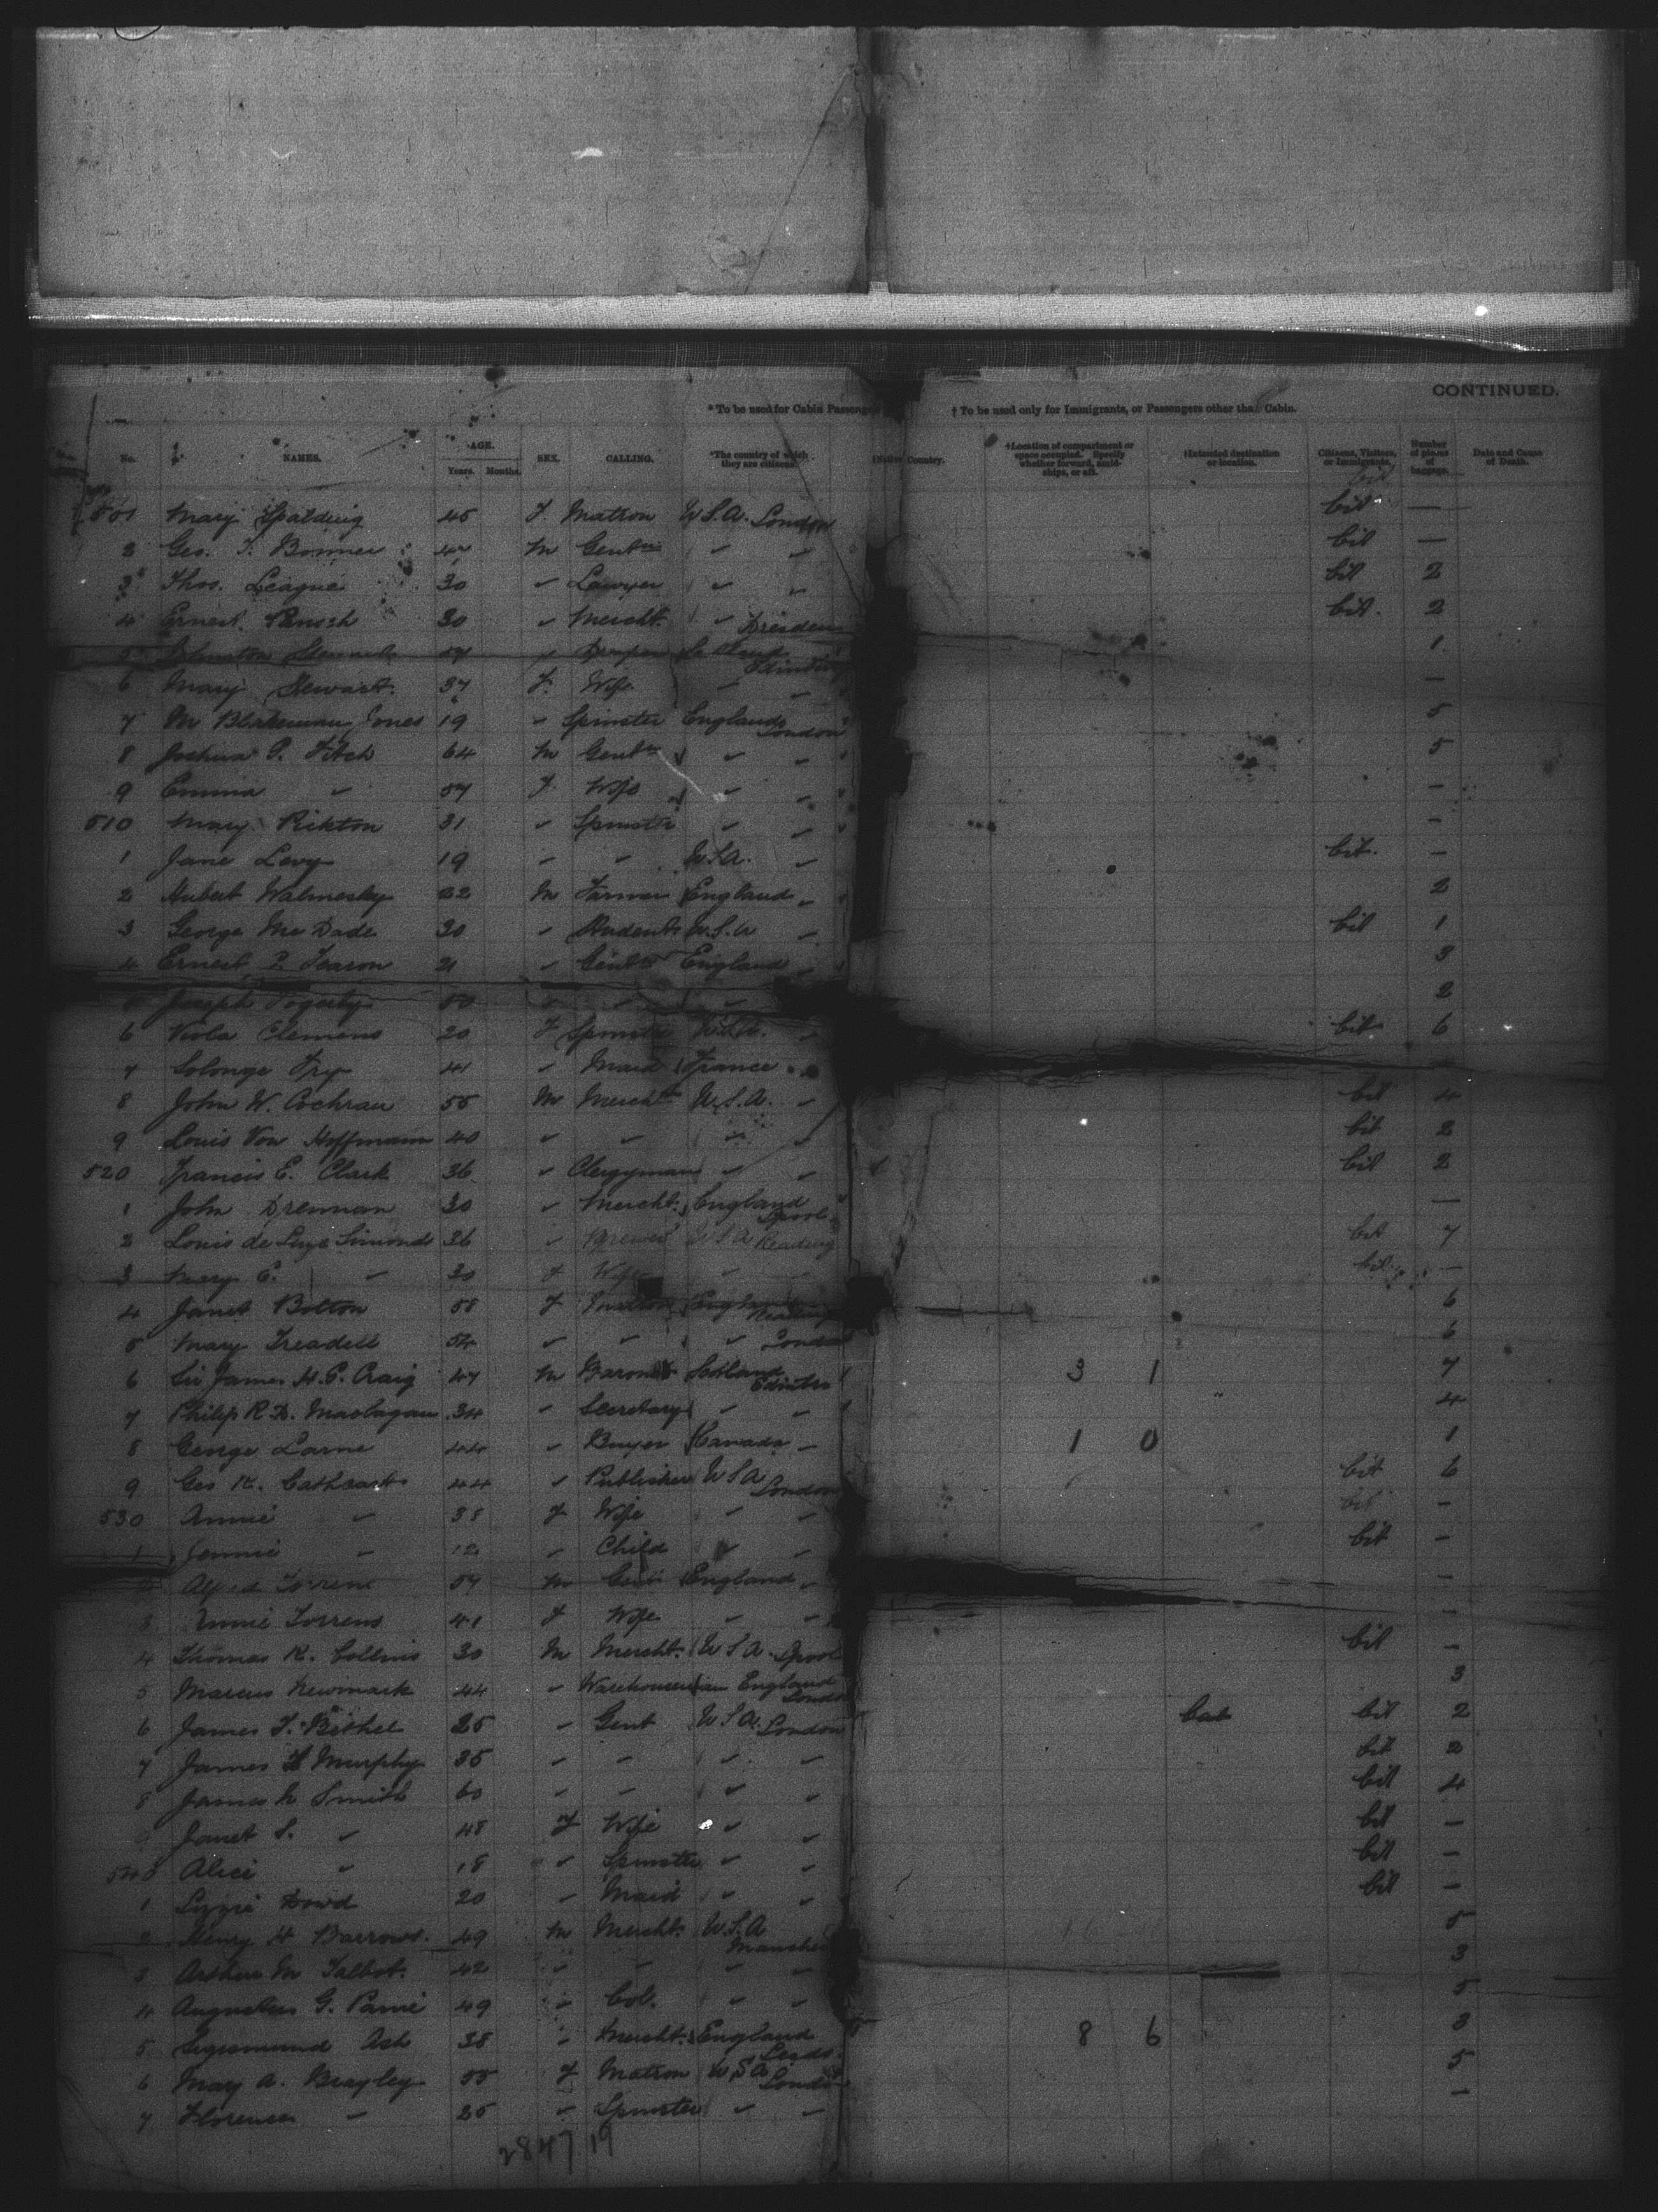 CONTINUED.
*To be used for Cabin Passengers † To be used only for Immigrants, or Passengers other than Cabin.
No. NAMES. AGE. Years. Months. SEX. CALLING. *The country of which they are citizens. †Native Country. †Location of compartment or space occupied. Specify whether forward, amidships, or aft. †Intended destination or location. Citizens, Visitors, or Immigrants. Number of pieces of baggage. Date and Cause of Death.
501 Mary Spalding 45 F. Matron U.S.A. London Cit —
2 Geo. T. Bonner M Gentn " " Cit —
3 Thos. League 30 " Lawyer " " Cit 2
4 Ernest 30 " Mercht. " Dresden Cit. 2
5 Johnston Stewart 54 " Draper Scotland 1
6 Mary Stewart. 37 F. Wife " " —
7 M Blakeman Jones 19 " Spinster England London 5
8 Joshua G. Fitch 64 M Gentn " " 5
9 Emma " 57 F. Wife " " —
510 Mary Pickton 31 " Spinster " " —
1 Jane Levy 19 " " U.S.A. " Cit. —
2 Hubert Walmesley 22 M Farmer England " 2
3 George McDade 30 " Student U.S.A " Cit 1
4 Ernest P. Fearon 21 " Gentn England " 3
5 Joseph Fogerty 50 " " " 2
6 Viola Clemens 20 F Spinster U.S.A. " Cit 6
7 Solonge Fry 41 " Maid France "
8 John W. Cochran 55 M Mercht U.S.A. " Cit 4
9 Louis Von Hoffmann 40 " " " " Cit 2
520 Francis E. Clark 36 " Clergyman " " Cit 2
1 John Drennan 30 " Mercht. England Lpool —
2 Louis de Luze Simonds 36 " Brewer U.S.A Reading Cit 7
3 Mary E. " 30 F Wife " " Cit —
4 Janet Bolton 58 F Matron England 6
5 Mary Treadell 54 " " " London 6
6 Sir James H.G. Craig 47 M Baronet Scotland Edinbro 3 1 7
7 Philip R.D. Maclagan 34 " Secretary " " 4
8 George Larne 44 " Buyer Canada " 1 0 1
9 Geo R. Cathcart 44 " Publisher U S A London Cit 6
530 Annie " 38 F Wife " " Cit —
1 Jennie " 12 " Child " " Cit —
2 Alfred Torrens 57 M Gent England " —
3 Annie Torrens 41 F Wife " " —
4 Thomas R. Collins 30 M Mercht. U S A. Lpool Cit —
5 Marcus Newmark 44 " Warehouseman England London 3
6 James T. Bethel 25 " Gent U S A. London Cal Cit 2
7 James Murphy 35 " " " " Cit 2
8 James N Smith 60 " " " " Cit 4
9 Janet S. " 48 F Wife " " Cit —
540 Alice " 18 " Spinster " " Cit —
1 Lizzie Dowd 20 " Maid " " Cit —
2 Henry H Barrows. 49 M Mercht. U.S.A 5
3 Arthur M Talbot. 42 " " " " 3
4 Augustus G. Paine 49 " Col. " " 5
5 Sigismund Ash 38 " Mercht. England Leeds 8 6 3
6 Mary A. Brayley 55 F Matron U,S A London 5
7 Florence " 25 " Spinster " " —
2847 19